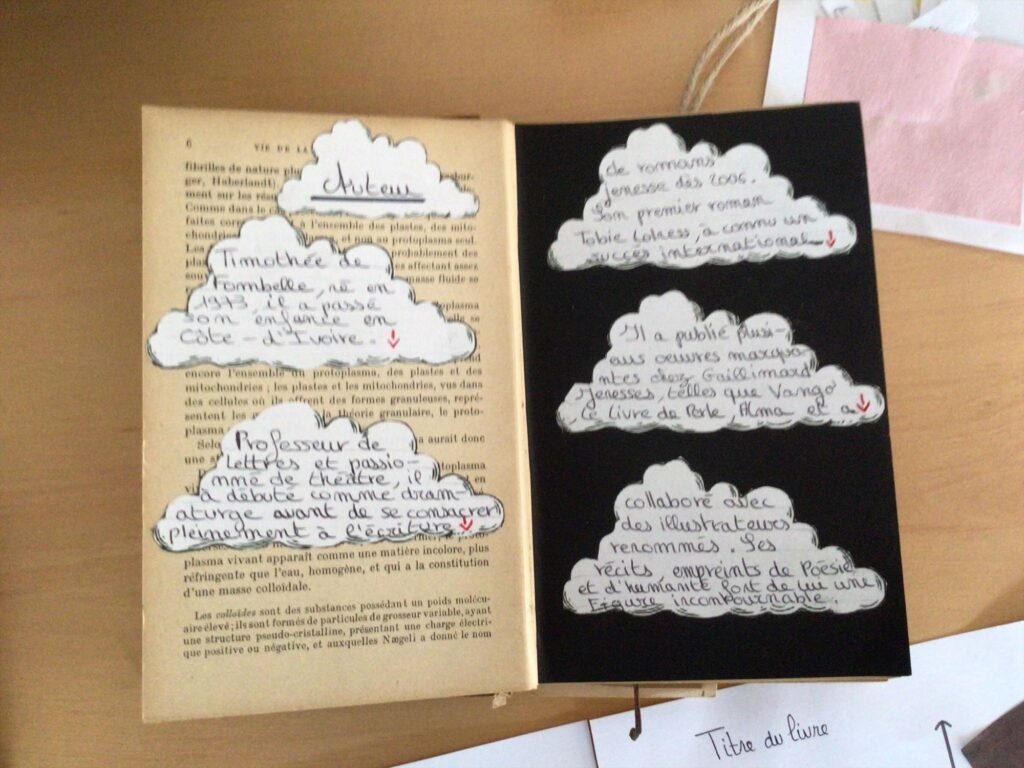 6
VIE DE LA
fibrilles de nature plu
ger, Haberlandt)
ment sur les rés
Comme dans le c
faites cor
mitochondri
Les
Auteur
à l'ensemble des plastes, des mito-
et non au protoplasma seul.
probablement des
es affectant assez
masse fluide se
Timothée de
Fombelle, né en
1973, il a passé
son enfance en
Côte-d'Ivoire. ↓
encore l'ensemble du protoplasma, des plastes et des
mitochondries ; les plastes et les mitochondries, vus dans
des cellules où ils offrent des formes granuleuses, repré-
sentent les
la théorie granulaire, le proto-
plasma
Selo
a aurait donc
une s
Professeur de
lettres et passio-
nné de théâtre, il
a débuté comme dram-
aturge avant de se consacrer
pleinement à l'écriture. ↓
plasma vivant apparaît comme une matière incolore, plus
réfringente que l'eau, homogène, et qui a la constitution
d'une masse colloïdale.
Les colloïdes sont des substances possédant un poids molécu-
laire élevé ; ils sont formés de particules de grosseur variable, ayant
une structure pseudo-cristalline, présentant une charge électri-
que positive ou négative, et auxquelles Nægeli a donné le nom
de romans
jenesse dès 2006.
Son premier roman
Tobie Lolness, a connu un
succès international ↓
Il a publié plusi-
eurs œuvres marqua-
ntes chez Gaillimard
Jenesses, telles que Vango
Le livre de Perle, Alma et a ↓
collaboré avec
des illustrateurs
renommés. Ses
récits empreints de Poésie
et d'humanité font de lui une
Figure incontournable.
Titre du livre ↑